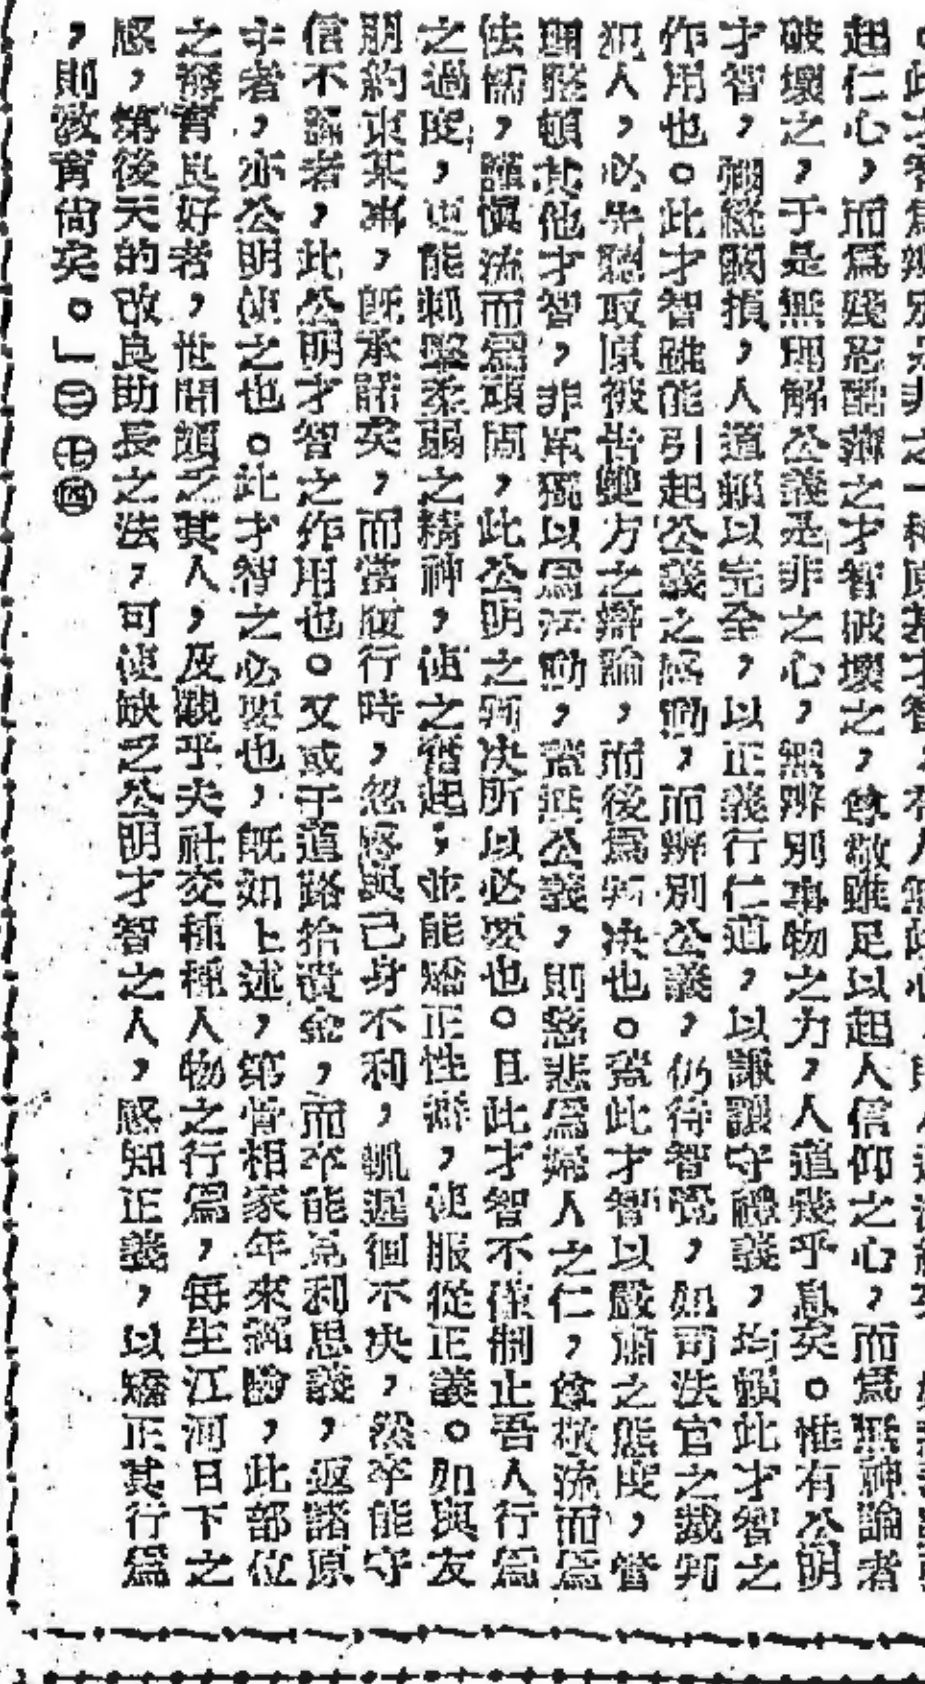 起仁心，而爲殘忍酷薄之才智破壞之，尊敬雖足以起人信仰之心，而爲無神論者
破壞之，于是無理解公義是非之心，無辨別事物之力，人道幾乎息矣。惟有公明
才智，彌縫闕損，人道賴以完全，以正義行仁道，以謙讓守禮義，均賴此才智之
作用也。此才智雖能引起公義之感動，而辨別公義，仍待智覺，如司法官之裁判
犯人，必先聽取原被告雙方之辯論，而後爲判決也。蓋此才智以嚴肅之態度，管
理整頓其他才智，非單獨以爲活動，蓋無公義，則慈悲爲婦人之仁，尊敬流而爲
怯懦，謹慎流而爲頑固，此公明之判決所以必要也。且此才智不僅制止吾人行爲
之過度，更能刺擊柔弱之精神，使之奮起，並能矯正性癖，使服從正義。如與友
朋約束某事，既承諾矣，而當履行時，忽感與己身不利，輒遲徊不決，然卒能守
信不踰者，此公明才智之作用也。又或于道路拾遺金，而卒能見利思義，返諸原
主者，亦公明使之也。此才智之必要也，既如上述，第骨相家年來經驗，此部位
之發育良好者，世間頗乏其人，及觀乎夫社交種種人物之行爲，每生江河日下之
感，第後天的改良助長之法，可使缺乏公明才智之人，感知正義，以矯正其行爲
，則教育尚矣。」㊂㊆㊃